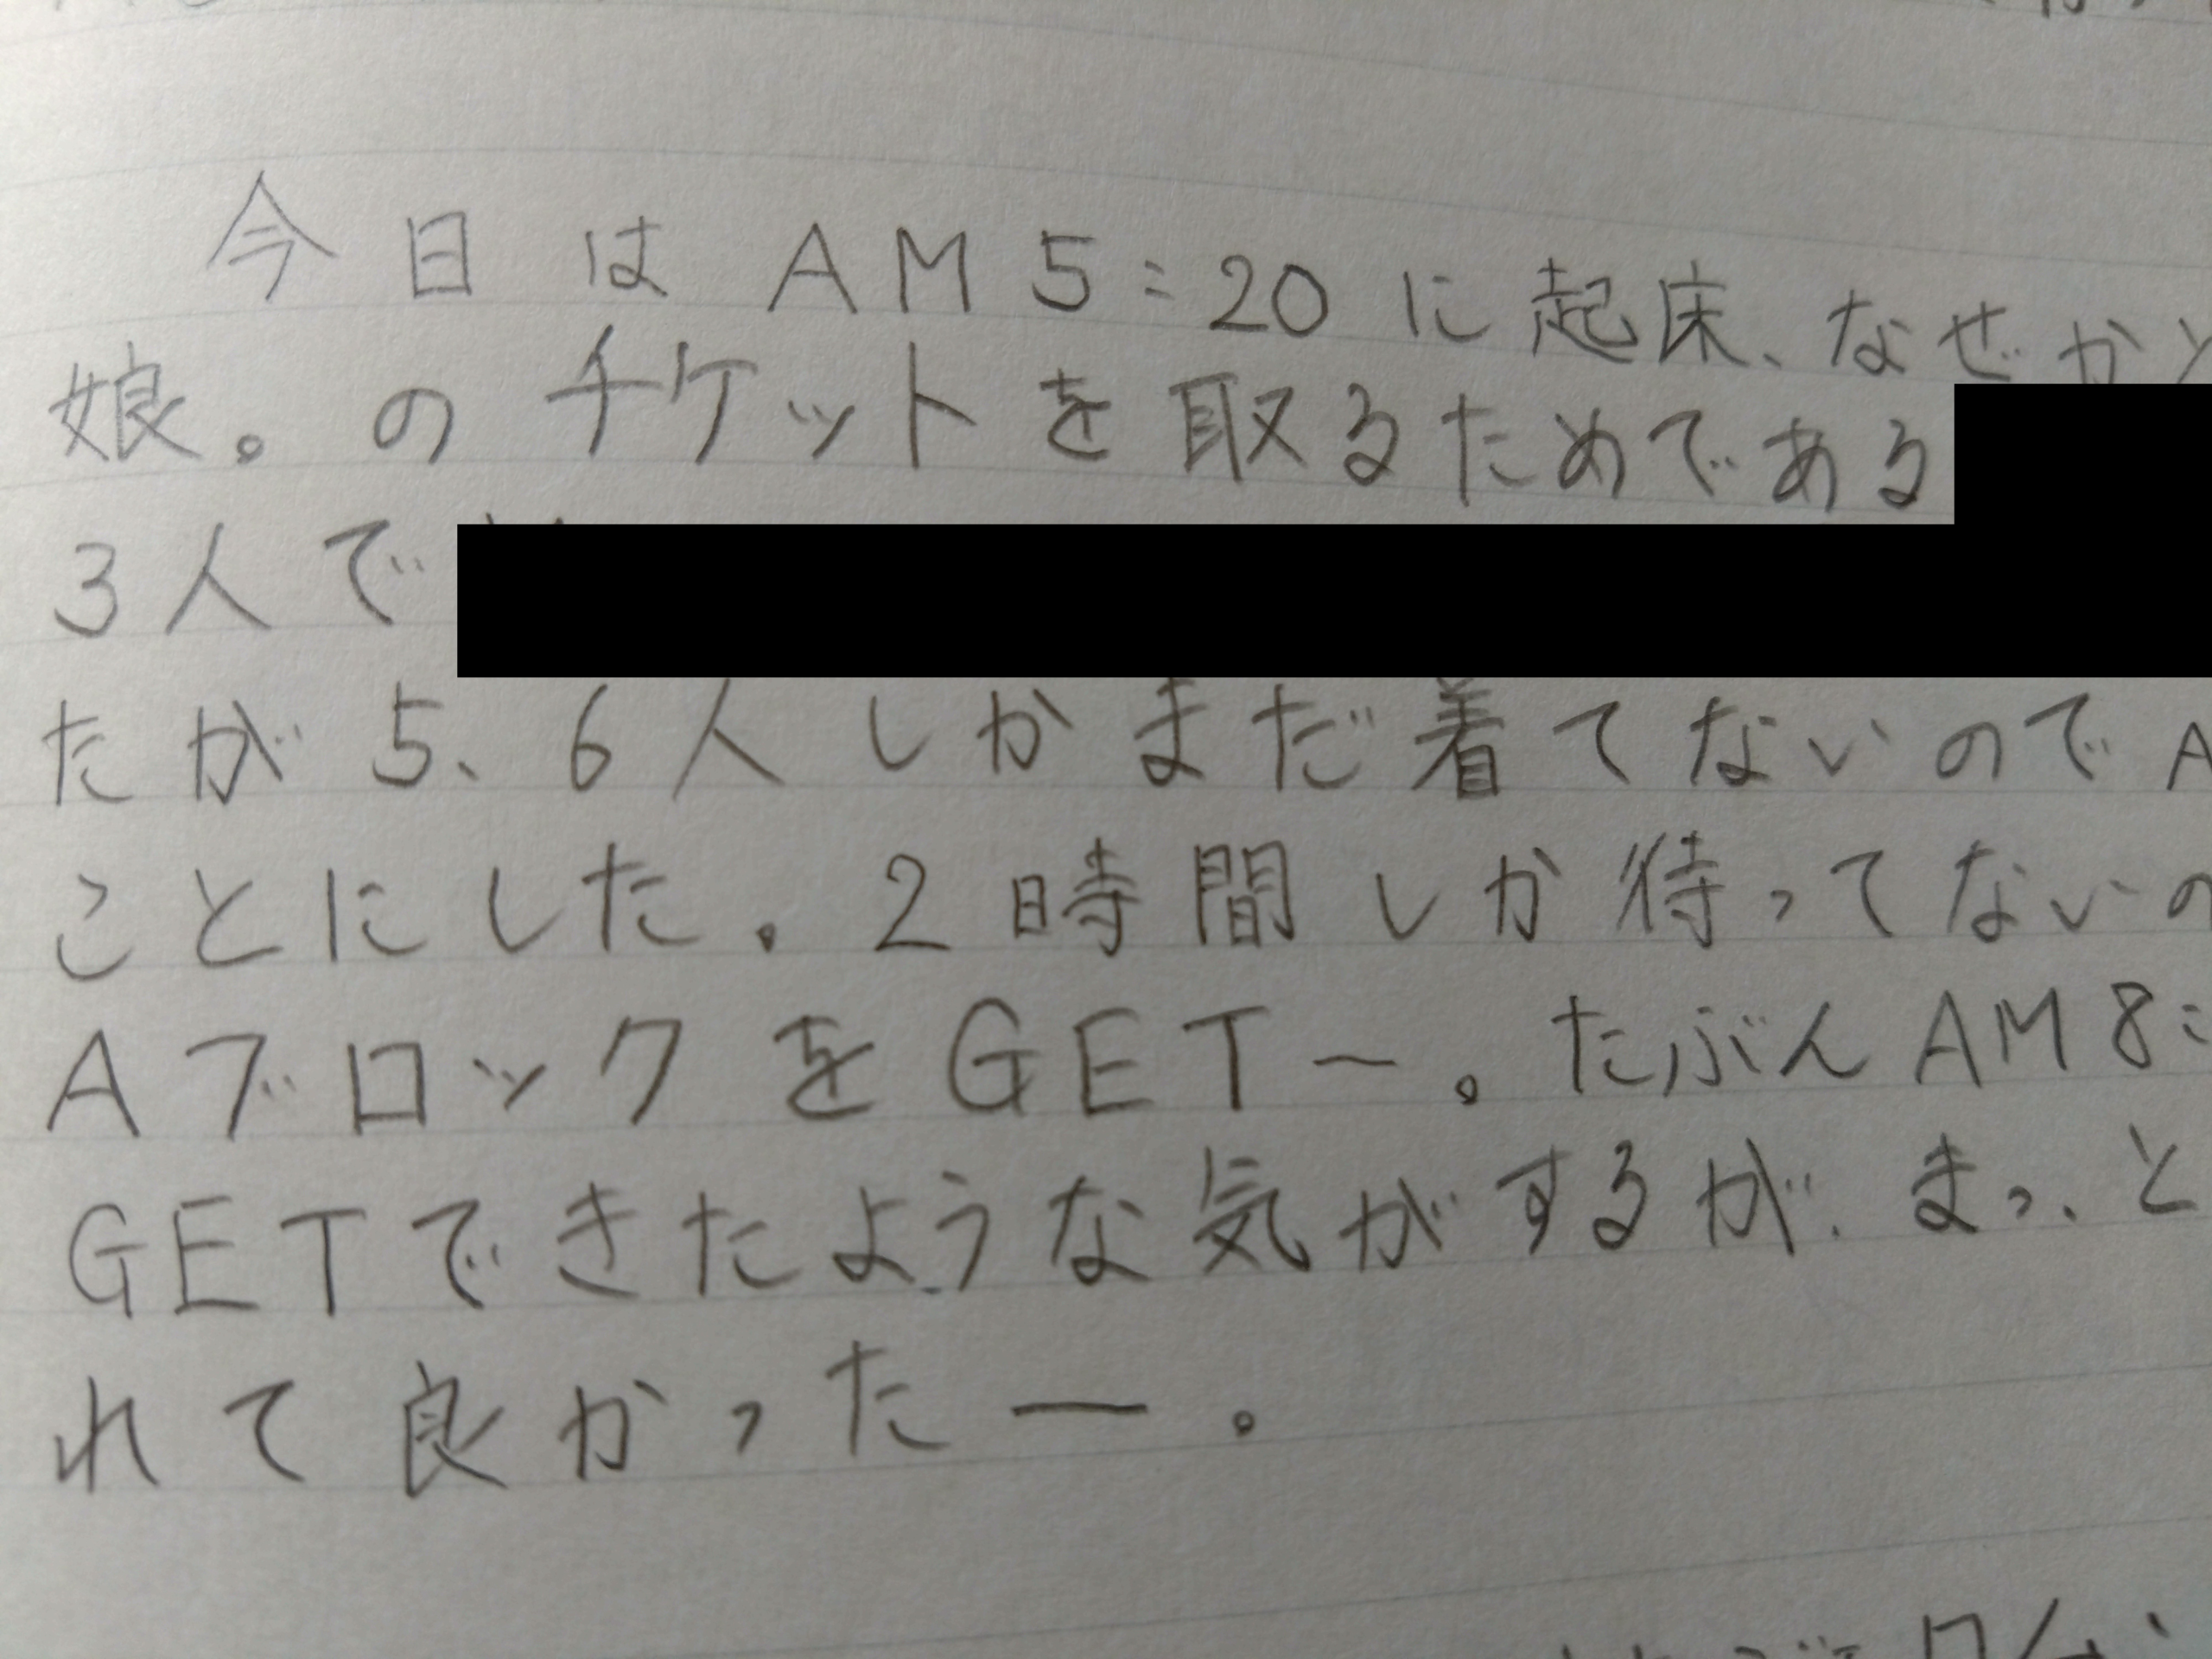 今日はAM5:20に起床、なぜかと
娘。のチケットを取るためである
3人で
たが5、6人しかまだ着てないのでA
ことにした。2時間しか待ってないの
AブロックをGET〜。たぶんAM8:
GETできたような気がするが、まっ、と
れて良かったー。